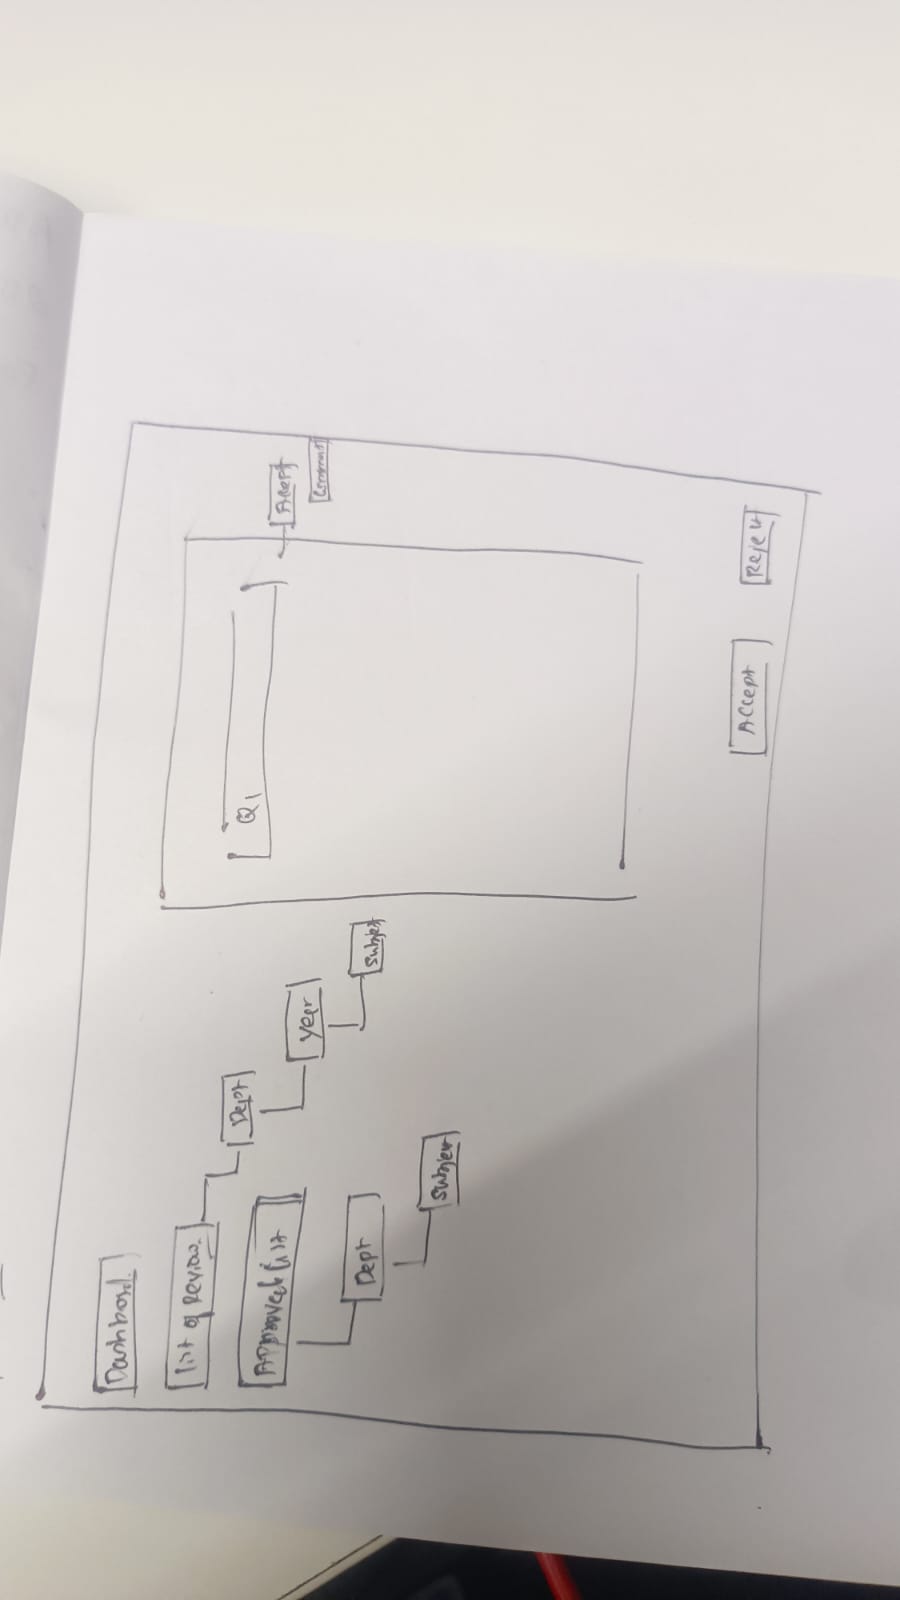 Dashboard.
list of Review.
Dept
Year
Subject
Approved list
Dept
Subject
Q1
Accept
Comment
Accept
Reject